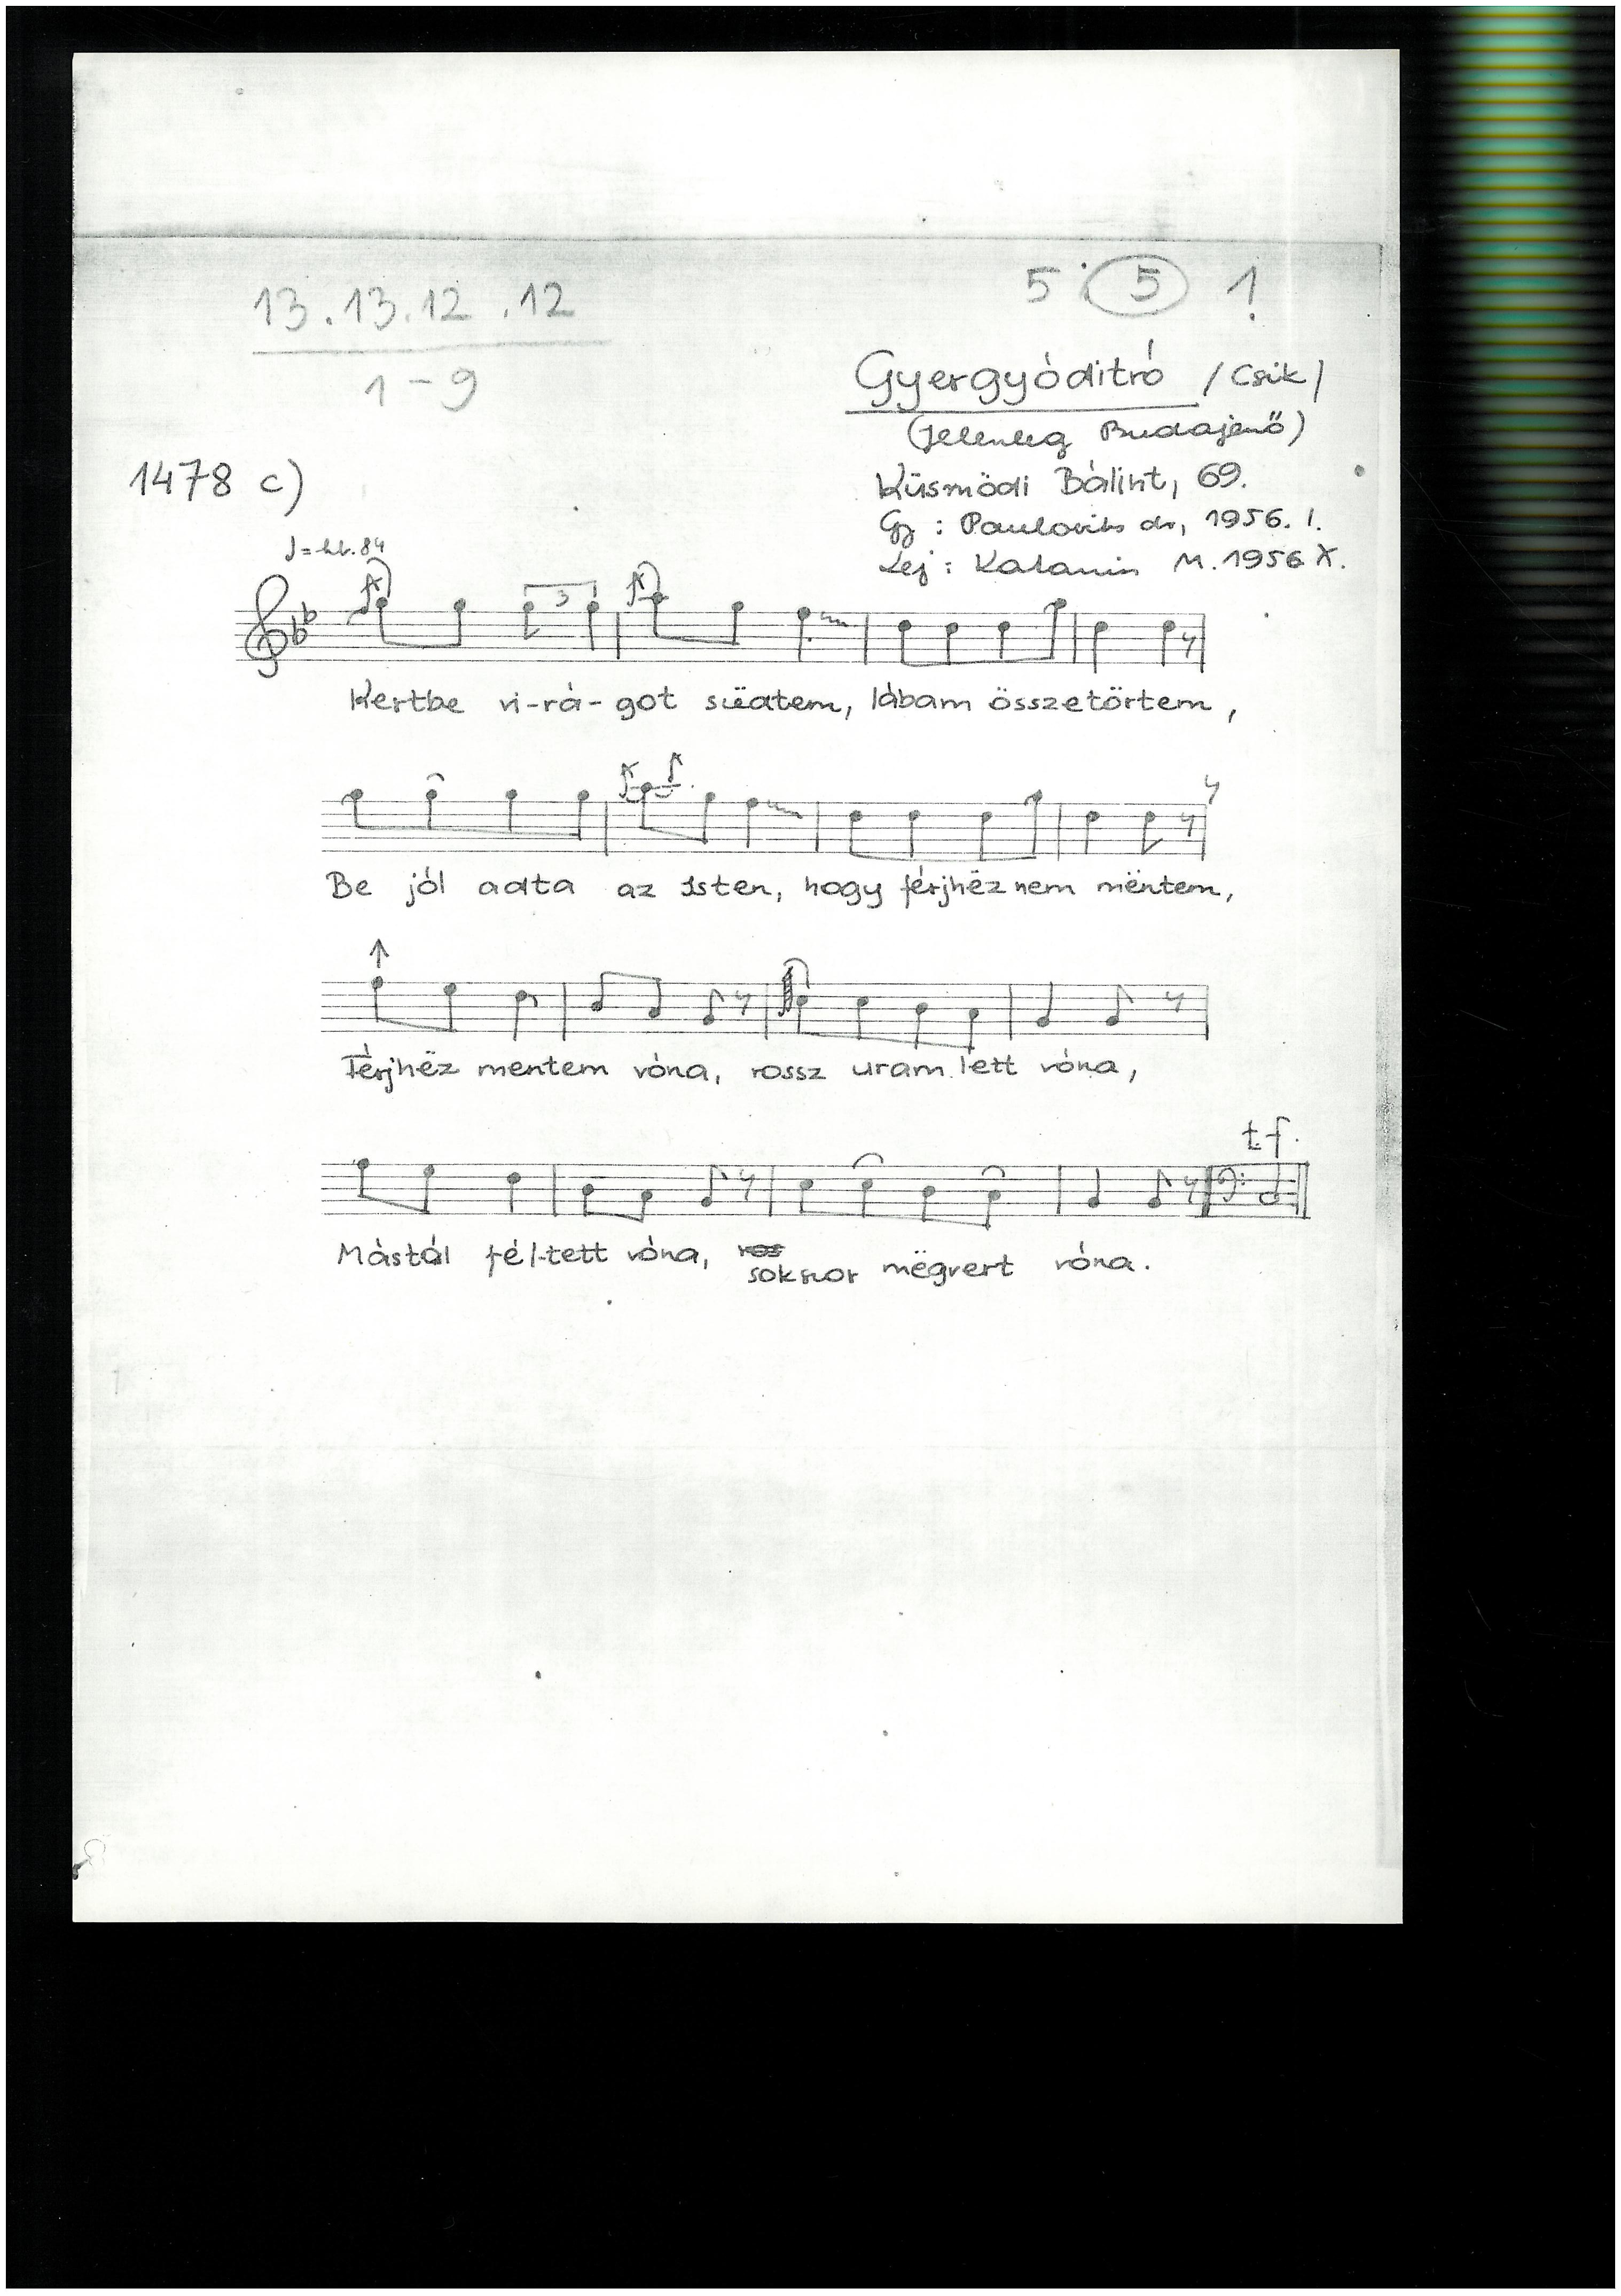 13.13.12.12
5 5 1!
1-9
Gyergyóditró /Csik/
(Jelenleg Budajenő)
1478 c)
Küsmödi Bálint, 69.
Gy: Paulovits dr, 1956. I.
Lej: M. 1956 X.
♩=kb. 84
3
Kertbe vi-rá-got lábam összetörtem,
Be jól adta az Isten, hogy férjhëz nem mëntem,
Férjhëz mentem vóna, rossz uram lett vóna,
t.f.
Mástól fél-tett vóna, sokszor mëgvert vóna.